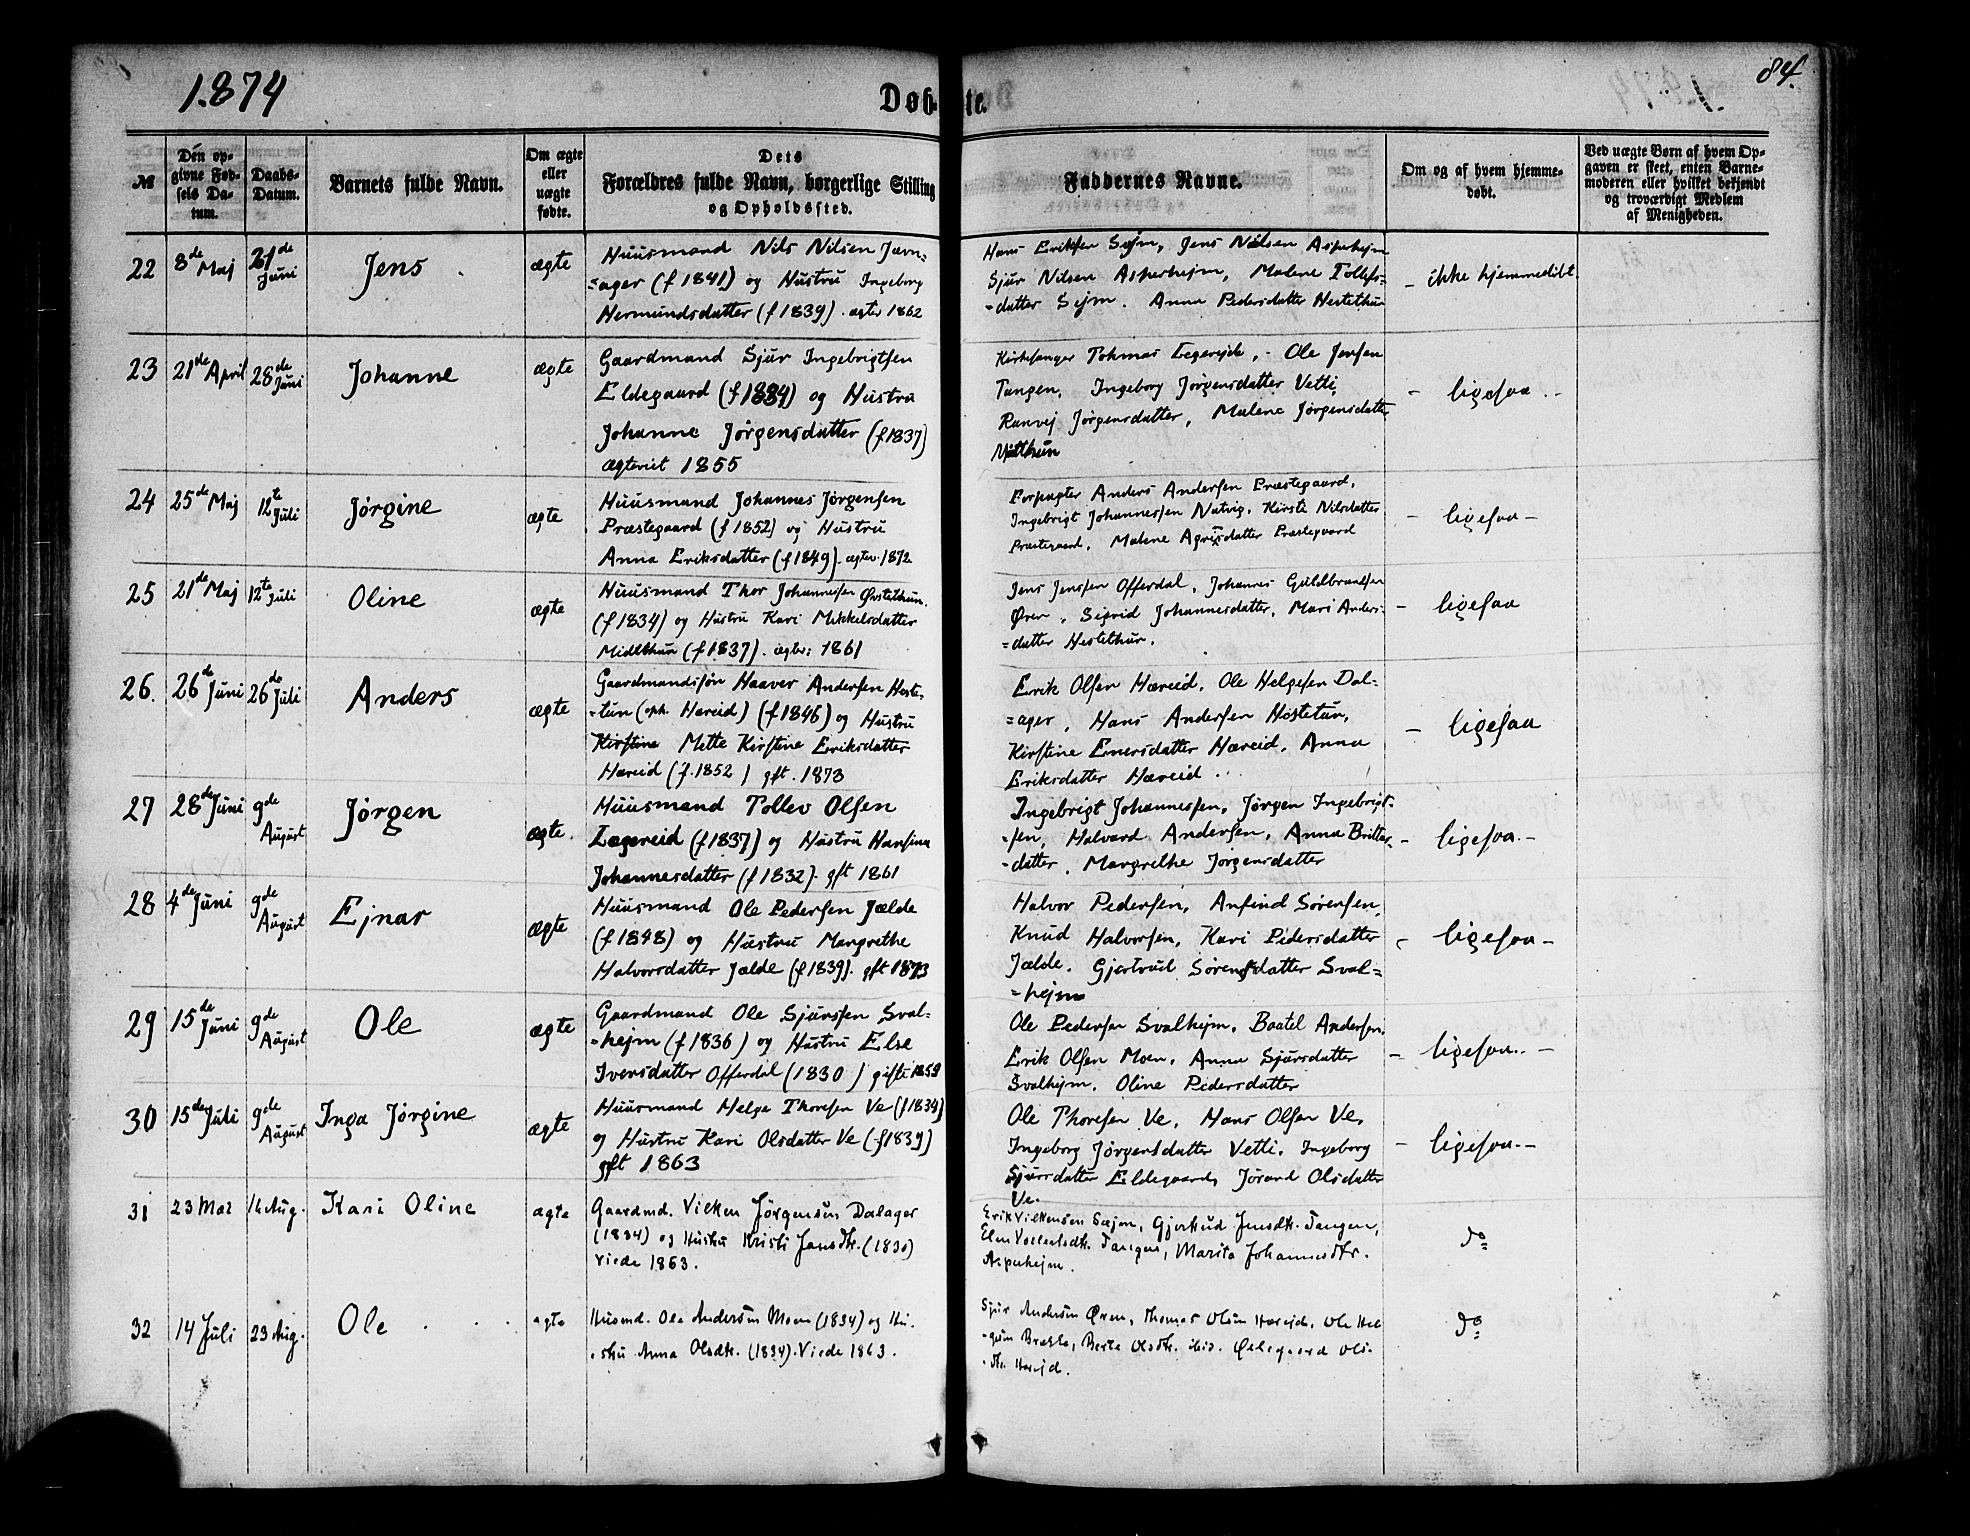 1874
84.
Døbte.
№
Den opgivne Fødsels Datum.
Daabs-Datum.
Barnets fulde Navn.
Om ægte eller uægte fødte.
Dets Forældres fulde Navn, borgerlige Stilling og Opholdssted.
Faddernes Navne.
Om og af hvem hjemmedøbt.
Ved uægte Børn af hvem Opgaven er skeet, enten Barnemoderen eller hvilket bekjendt og troværdigt Medlem af Menigheden.
22
8de Maj
21de Juni
Jens
ægte
Huusmand Nils Nilsen Jævn-
=ager (f 1841) og Hustru Ingeborg
Hermundsdatter (f 1839). ægtev 1862
Hans Eriksen Sejm, Jens Nilsen Asperhejm
Sjur Nilsen Asperhejm, Malene Tollefs=
=datter Sejm. Anna Pedersdatter Hestethun
- ikke hjemmedøbt.
23
21de April
28de Juni
Johanne
ægte
Gaardmand Sjur Ingebrigtsen
Eldegaard (f 1834) og Hustru
Johanne Jørgensdatter (f 1837)
ægteviet 1855
Kirkesanger Tohmas Lægereide, Ole Jensen
Tangen, Ingeborg Jørgensdatter Vetti
Ranvej Jørgensdatter, Malene Jørgensdatter
Midthun
- ligesaa -
24
25de Maj
12te Juli
Jørgine
ægte
Huusmand Johannes Jørgensen
Præstegaard (f 1852) og Hustru
Anna Eriksdatter (f 1849). ægtev. 1872
Forpagter Anders Andersen Præstegaard,
Ingebrigt Johannessen Natvig. Kirsti Nilsdatter
Præstegaard, Malene datter Præstegaard
- ligesaa -
25
21de Maj
12te Juli
Oline
ægte
Huusmand Thor Johannessen Øvstethun.
(f 1834) og Hustru Kari Mikkelsdatter
Midtthun (f 1837). ægtev: 1861
Jens Jenssen Offerdal, Johannes Guldbrandsen
Øren, Sigrid Johannesdatter, Mari Anders-
=datter Hestethun.
- ligesaa
26.
26de Juni
26de Juli
Anders
ægte
Gaardmandssøn Haaver Andersen Heste-
-tun (oph. Hæreid) (f 1846) og Hustru
Kirstine Mette Kirstine Eriksdatter
Hæreid (f. 1852) gft. 1873
Erik Olsen Hæreid, Ole Helgesen Dal=
=ager, Hans Andersen Hestetun,
Kirstine Enersdatter Hæreid, Anna
Eriksdatter Hæreid
- ligesaa
27
28de Juni
9de August
Jørgen
ægte.
Huusmand Tollev Olsen
Lægereid (f 1837) og Hustru Hansina
Johannesdatter (f 1832). gft 1861
Ingebrigt Johannessen, Jørgen Ingebrigt-
-sen, Halvard Andersen, Anna Brittes-
-datter. Margrethe Jørgensdatter
- ligesaa -
28
4de Juni
9de August
Ejnar
ægte
Huusmand Ole Pedersen Jælde
(f 1848) og Hustru Margrethe
Halvorsdatter Jælde (f 1839). gft 1873
Halvor Pedersen, Anfind Sørensen,
Knud Halvorsen, Kari Pedersdatter
Jælde, Gjertrud Sørensdatter Sval=
=hejm
- ligesaa -
29
15de Juni
9de August
Ole
ægte
Gaardmand Ole Sjurssen Sval=
=hejm (f 1836) og Hustru Else
Iversdatter Offerdal (1830) gifte 1859
Ole Pedersen Svalhejm, Baatel Andersen,
Erik Olsen Moen, Anna Sjursdatter
Svalhejm, Oline Pedersdatter
- ligesaa. -
30
15de Juli
9de August
Inga Jørgine
ægte
Huusmand Helge Thoresen Ve (f 1834)
og Hustru Kari Olsdatter Ve (f 1839)
gft 1863
Ole Thoresen Ve, Hans Olsen Ve,
Ingeborg Jørgensdatter Vetti, Ingeborg
Sjursdatter Eldegaard, Jorand Olsdatter
Ve.
- ligesaa -
31
23 Mai
16 Aug.
Kari Oline
ægte
Gaardmd. Vilken Jørgensen Dalager
(1834) og Hustru Kristi Jensdtr. (1830)
viede 1863.
Erik Vilkensen Sæjm, Gjertrud Jensdtr. Tangen,
Tangen, Marita Johannesdtr.
Asperhejm.
do
32
14 Juli
23 Aug.
Ole
ægte
Husmd. Ole Andersen Moen (1834) og Hu-
-stru Anna Olsdtr. (1834). Viede 1863.
Sjur Andersen Øren, Thomas Olsen Hæreid, Ole Hel-
-gesen, Berte Olsdtr. ibid. Øllegaard Ols-
-dtr. Hæreid.
do